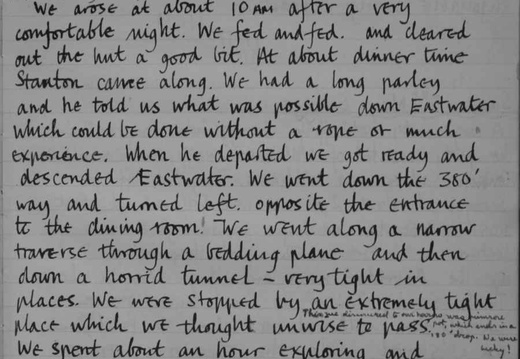 We arose at about 10 AM after a very
comfortable night. We fed and fed. and cleared
out the hut a good bit. At about dinner time
Stanton came along. We had a long parley
and he told us what was possible down Eastwater
which could be done without a rope or much
experience. When he departed we got ready and
descended Eastwater. We went down the 380'
way and turned left. opposite the entrance
to the dining room! We went along a narrow
traverse through a bedding plane and then
down a horrid tunnel - very tight in
places. We were stopped by an extremely tight
place which we thought unwise to pass.
to our was
pot, which ends in a
180' drop. We were
lucky!
We spent about an hour exploring and